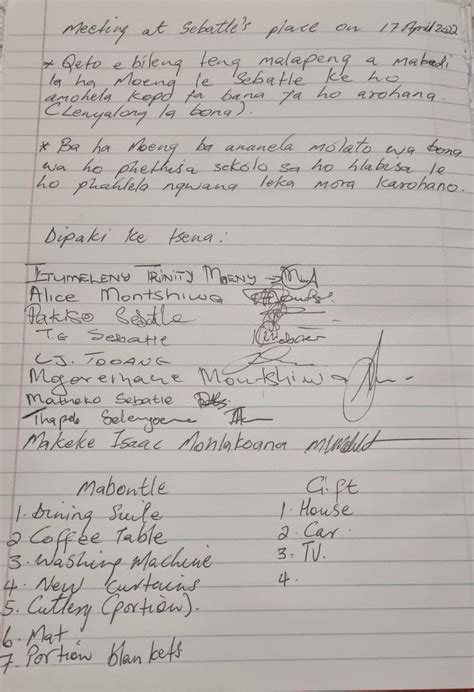 Meeting at Sebatle's place on 17 April 2022
* Qeto e bileng teng malapeng a Mabedi
la ha Moeng le Sebatle ke ho
amohela kopo ya bana ya ho arohana.
(Lenyalong la bona).
* Ba ha Moeng ba ananela molato wa bona
wa ho phethisa sekolo sa ho hlabisa le
ho phahlela ngwana leka mora karohano.
Dipaki ke tsena:
Itumeleng Trinity Moeng
Alice Montshiwa
Patiso Sebatle
T.G Sebatle
C.J. TOOANE
Montshiwa
Matheko Sebatle
Thapelo
Makeke Isaac Mohlakoana
Mabontle
1. Dining Suite
2. Coffee Table
3. Washing Machine
4. New Curtains
5. Cutlery (portion).
6. Mat
7. Portion blankets
Gift
1. House
2. Car.
3. TV.
4.